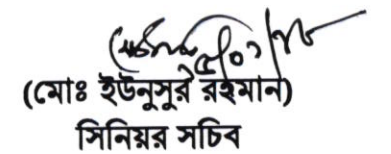 (মোঃ ইউনুসুর রহমান)
সিনিয়র সচিব